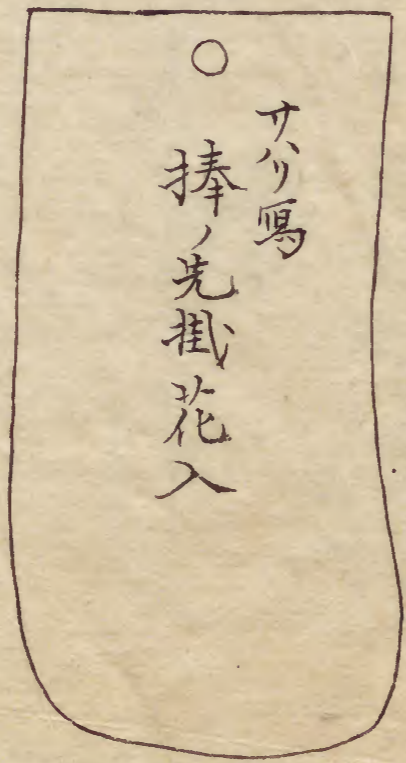 サハリ寫
捧ノ先掛花入